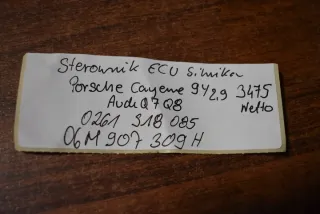 Sterownik ECU silnika
Porsche Cayenne 9Y 2,9 3475
Audi Q7 Q8 Netto
0261 S18 085
06M 907 309 H